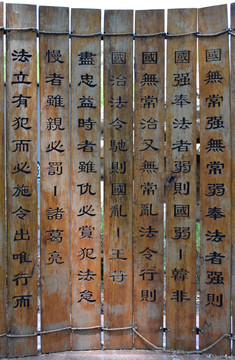 國無常強無常弱奉法者強則
國强奉法者弱則國弱－韓非
國無常治又無常亂法令行則
國治法令馳則國亂－王苻
盡忠益時者雖仇必賞犯法怠
慢者雖親必罰－諸葛亮
法立有犯而必施令出唯行而